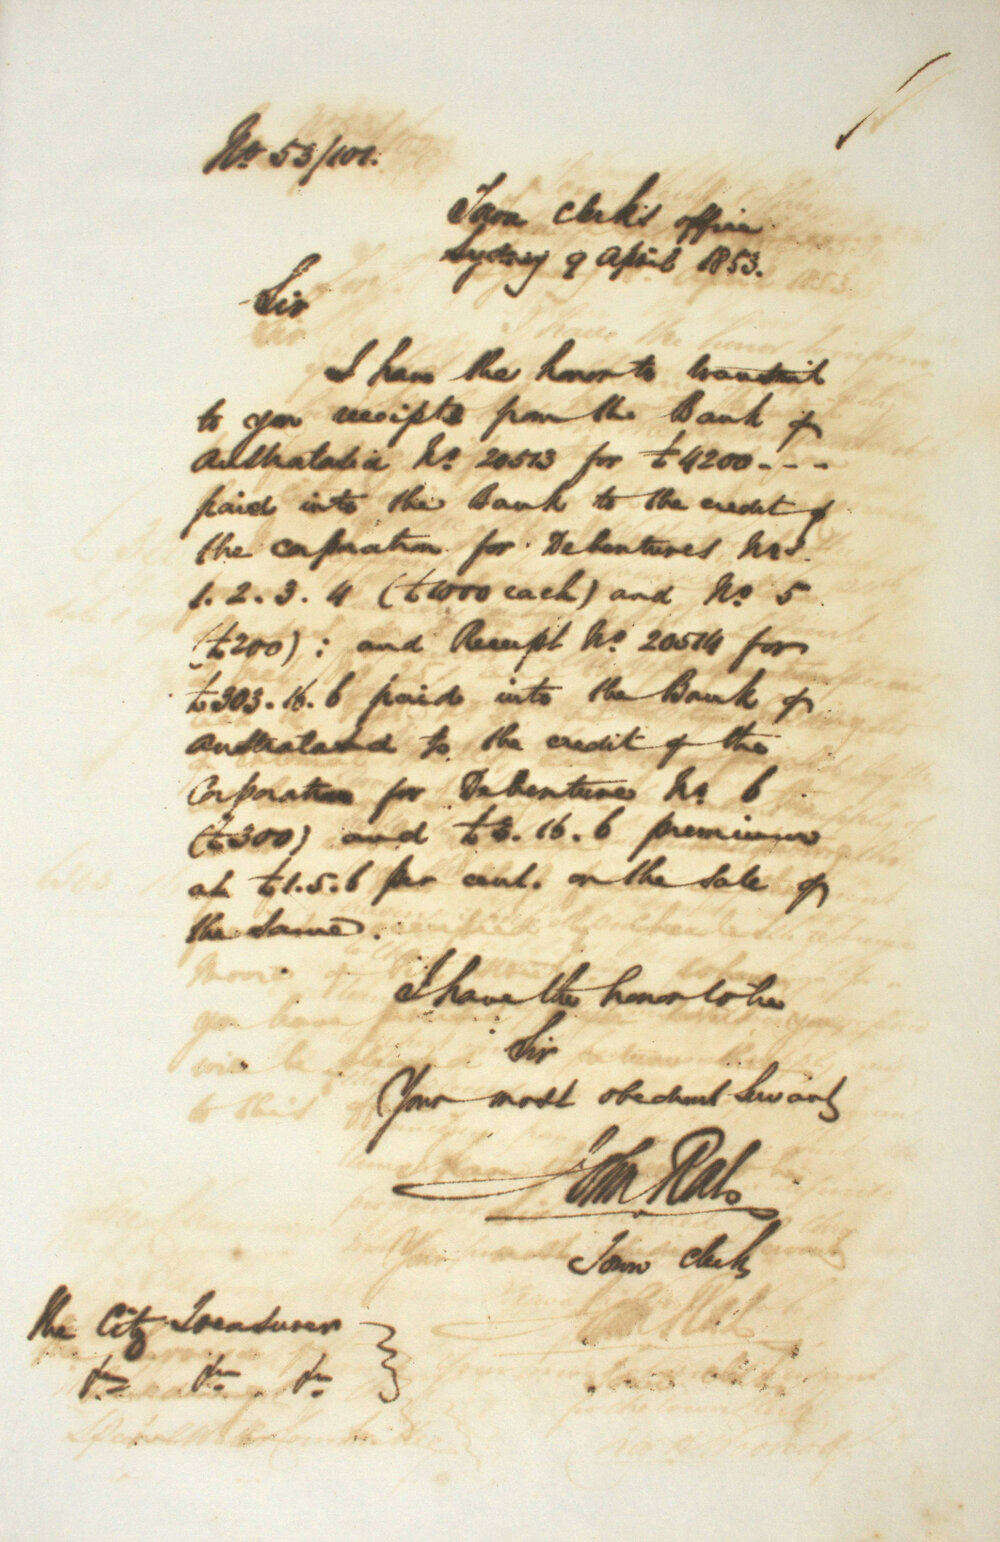 No 53/101.
Town Clerk's Office
Sydney 9 April 1853.
Sir
I have the honor to transmit
to you receipts from the Bank of
Australasia No. 20513 for £4200.---
paid into the Bank to the credit of
the corporation for Debentures Nos.
1. 2. 3. 4 (£1000 each) and No. 5
(£200) : and Receipt No. 20514 for
£303.16.6 paid into the Bank of
Australasia to the credit of the
Corporation for Debenture No. 6
(£300) and £3.16.6 premium
at £1.5.6 per cent. on the sale of
the same.
I have the honor to be
Sir
Your most obedient Servant
John Rae
Town Clerk
The City Treasurer
&c &c &c